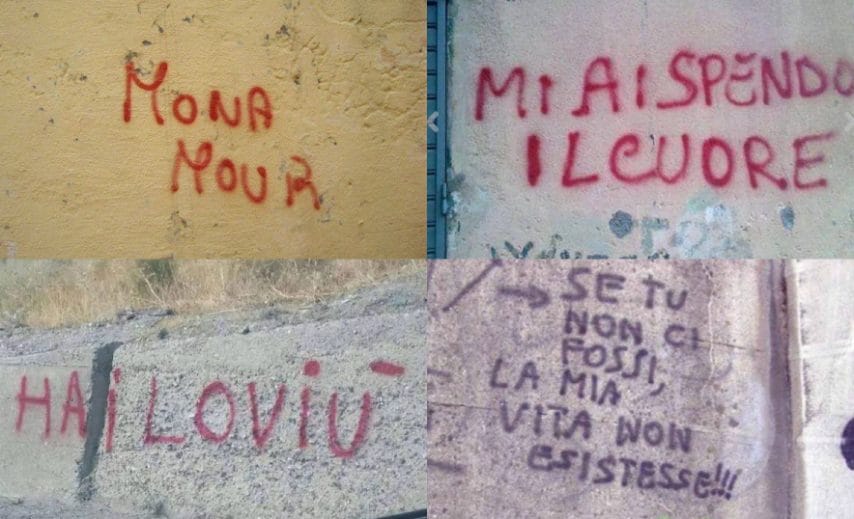 MONA
MOUR
MI AISPENDO
IL CUORE
HAI LOVIÙ
SE TU
NON CI
FOSSI,
LA MIA
VITA NON
ESISTESSE!!!